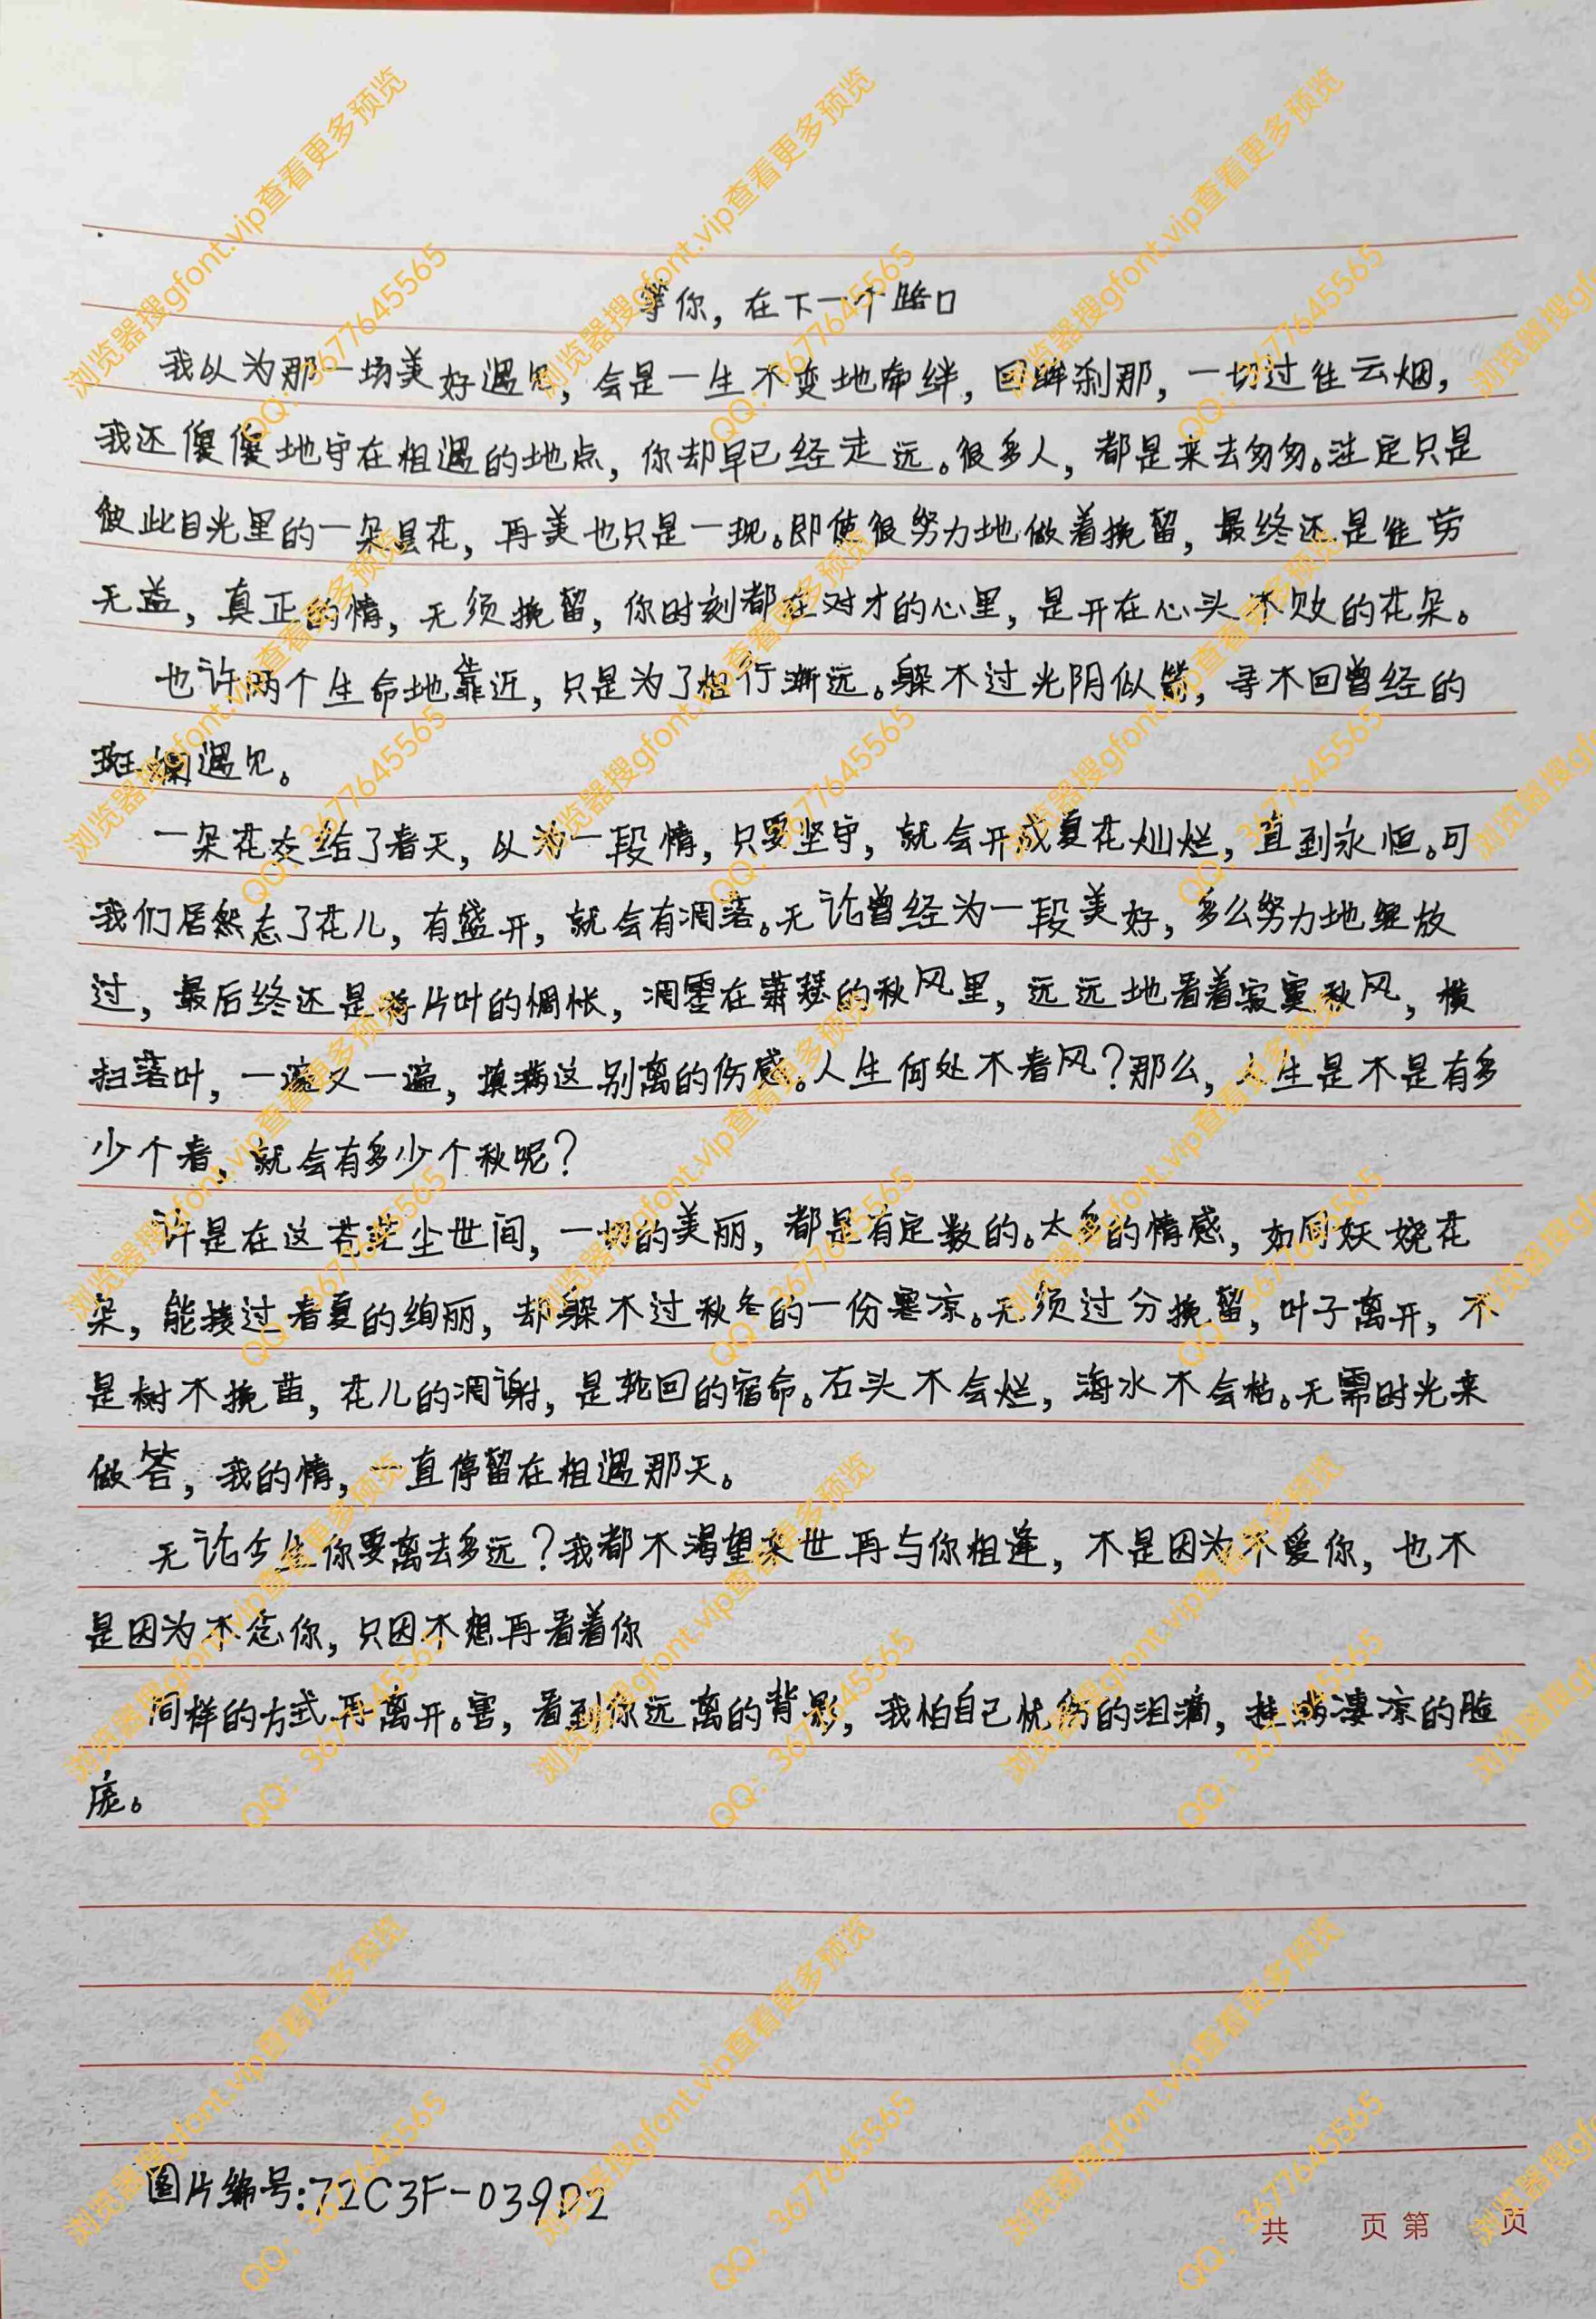 等你，在下一个路口
我以为那一场美好遇见，会是一生不变地牵绊，回眸刹那，一切过往云烟，
我还傻傻地守在相遇的地点，你却早已经走远。很多人，都是来去匆匆。注定只是
彼此目光里的一朵昙花，再美也只是一现。即使很努力地做着挽留，最终还是徒劳
无益，真正的情，无须挽留，你时刻都在对才的心里，是开在心头不败的花朵。
也许两个生命地靠近，只是为了相行渐远。躲不过光阴似箭，寻不回曾经的
斑斓遇见。
一朵花交给了春天，以为一段情，只要坚守，就会开成夏花灿烂，直到永恒。可
我们居然忘了花儿，有盛开，就会有凋落。无论曾经为一段美好，多么努力地绽放
过，最后终还是将片叶的惆怅，凋零在萧瑟的秋风里，远远地看着寂寞秋风，横
扫落叶，一遍又一遍，填满这别离的伤感。人生何处不春风？那么，人生是不是有多
少个春，就会有多少个秋呢？
许是在这苍茫尘世间，一切的美丽，都是有定数的。太多的情感，如同妖娆花
朵，能挨过春夏的绚丽，却躲不过秋冬的一份寒凉。无须过分挽留，叶子离开，不
是树不挽留，花儿的凋谢，是轮回的宿命。石头不会烂，海水不会枯。无需时光来
做答，我的情，一直停留在相遇那天。
无论今生你要离去多远？我都不渴望来世再与你相逢，不是因为不爱你，也不
是因为不念你，只因不想再看着你
同样的方式再离开。害，看到你远离的背影，我怕自己忧伤的泪滴，挂满凄凉的脸
庞。
图片编号:72C3F-039D2
共 页 第 页
浏览器搜gfont.vip查看更多预览
QQ：3677645565